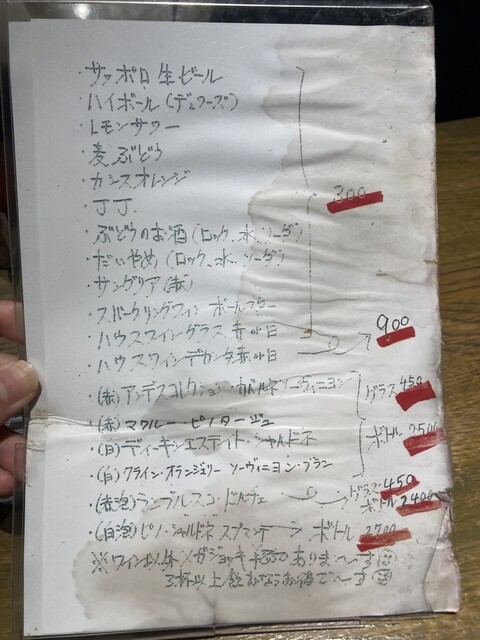 ・サッポロ生ビール
・ハイボール(デュワーズ)
・レモンサワー
・麦ぶどう
・カシスオレンジ
・丁丁
300
・ぶどうのお酒(ロック、水、ソーダ)
・だいやめ(ロック、水、ソーダ)
・サングリア(赤)
・スパークリングワイン ポールスター
・ハウスワイングラス赤or白
900
・ハウスワインデカンタ赤or白
・(赤)アンデスコレクション・カベルネソーヴィニヨン グラス 450
・(赤)マクルー・ピノタージュ ボトル 2500
・(白)ディーキンエステイト・シャルドネ
・(白)クライン・オランジュリー ソーヴィニヨン・ブラン
・(赤泡)ランブルスコ・ドルチェ → グラス 450 ボトル 2400
・(白泡)ピノ・シャルドネ スプマンテ → ボトル 2700
※ワイン以外メガジョッキ あります
3杯以上飲むならお得で〜す